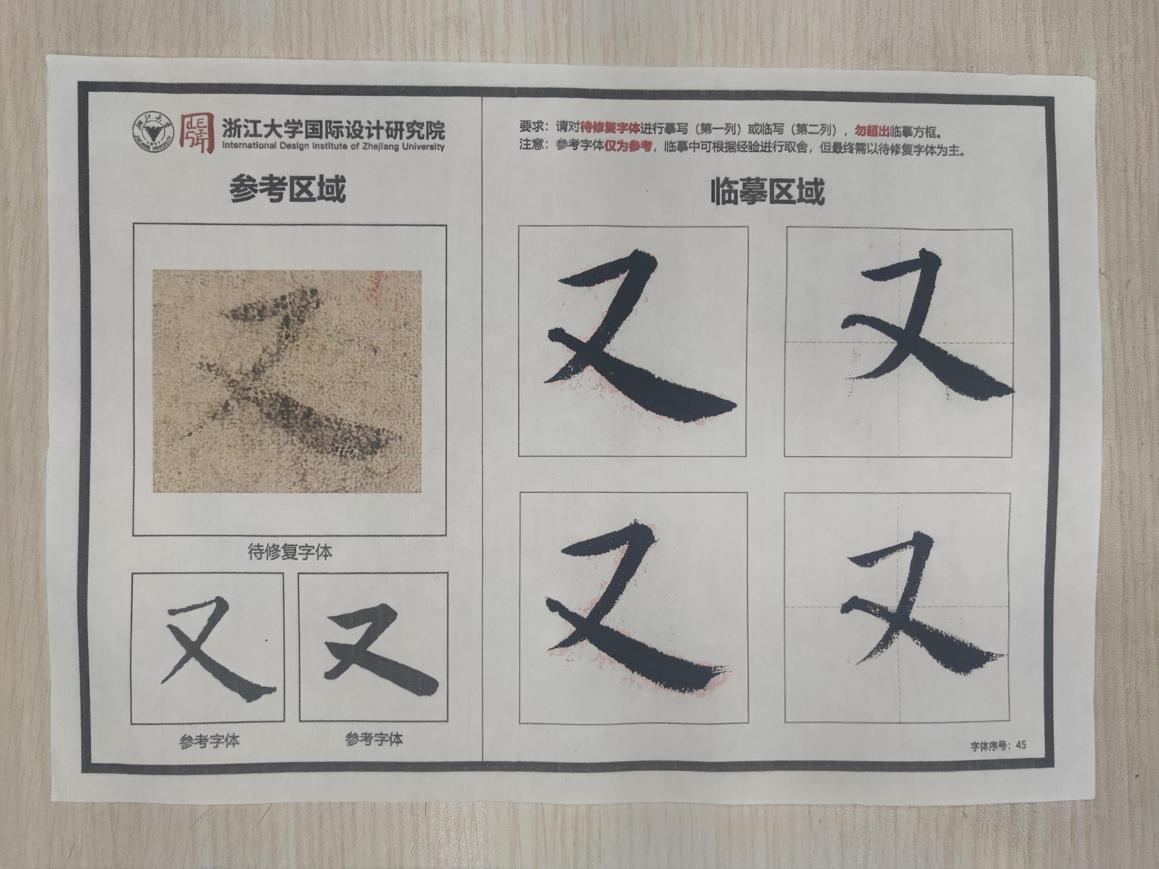 浙江大学国际设计研究院
International Design Institute of Zhejiang University
参考区域
又
待修复字体
又 又
参考字体 参考字体
要求：请对待修复字体进行摹写（第一列）或临写（第二列），勿超出临摹方框。
注意：参考字体仅为参考，临摹中可根据经验进行取舍，但最终需以待修复字体为主。
临摹区域
又 又
又 又
字体序号：45